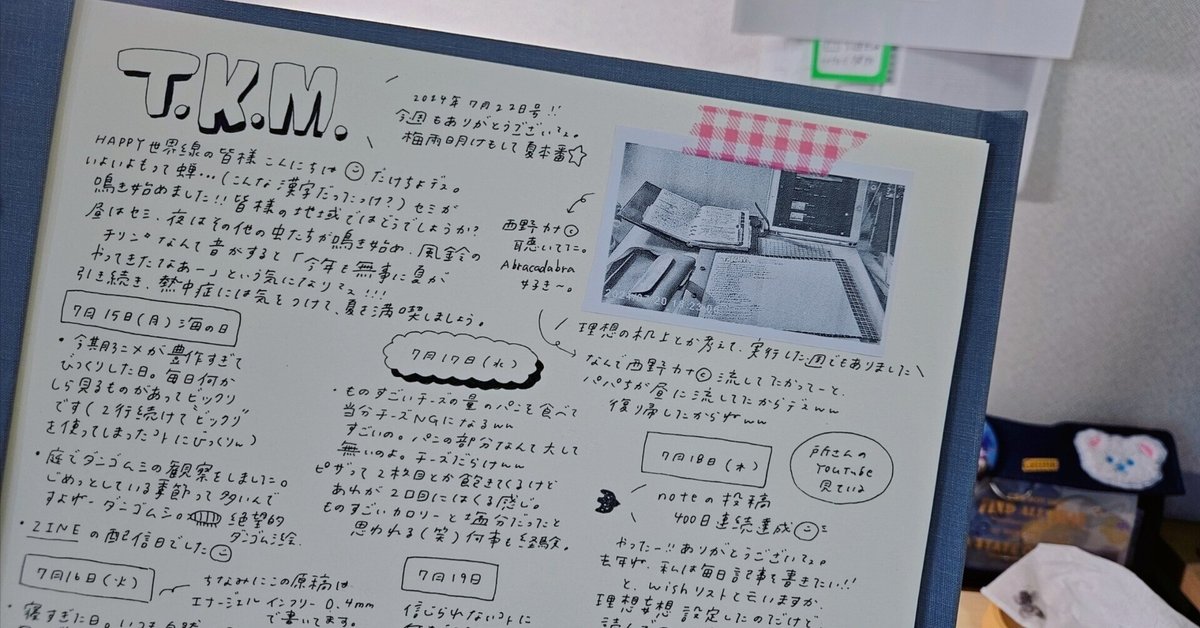 T.K.M.
2024年7月22日号!!
今週もありがとうございてっ。
梅雨日月けもして夏本番☆
HAPPY世界線の皆様こんにちは だけちよデス。
いよいよもって蝉…(こんな漢字だったっけ?)セミが
鳴き始めました!!皆様の地域ではどうでしょうか?
昼はセミ、夜はその他の虫たちが鳴き始め、風鈴の
チリンなんて音がすると「今年も無事に夏が
やってきたなあー」という気になりマス!!!
引き続き、熱中症には気をつけて、夏を満喫しましょう。
西野カナ
聴いてた。
Abracadabra
好き〜。
理想の机上とか考えて、実行した週でもありました
なんで西野カナ流してたかってーと
パパちが昼に流してたからデスww
復帰したからねww
7月15日(月)海の日
・今期アニメが豊作すぎて
びっくりした日。毎日何か
しら見るものがあってビックリ
です(2行続けて"ビックリ"
を使ってしまったコトにびっくりw)
・庭でダンゴムシの観察をしました。
じめっとしている季節って多いんで
すよねーダンゴムシ。
絶望的
ダンゴムシ絵.
・ZINEの配信日でした
7月16日(火)
ちなみにこの原稿は
エナージェル インフリー 0.4mm
で書いてます。
・寝すぎた日。
7月17日(水)
・ものすごいチーズの量のパンを食べて
当分チーズNGになるww
すごいの。パンの部分なんて大して
無いのよ。チーズだらけww
ピザって2枚目とか飽きてくるけど
あれが2口目にはくる感じ。
ものすごいカロリーと塩分だったと
思われる(笑)何事も経験。
7月19日
信じられないコトに
7月18日(木)
所さんの
YouTube
見ている
noteの投稿
400日連続達成
やったー!!ありがとうございてっ。
私は毎日記事を書きたい!!
と、wishリストと云いますか、
理想を設定したのだけど